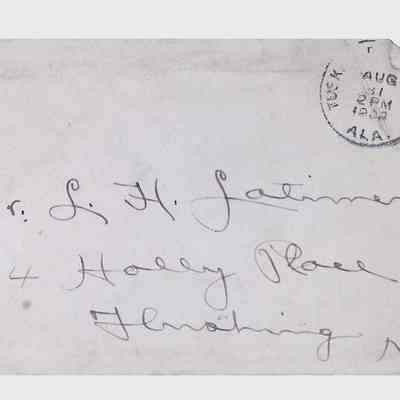 TUSK
AUG
31
2 PM
ALA.
r. L. H. Latimer
4 Holly Place
Flushing N